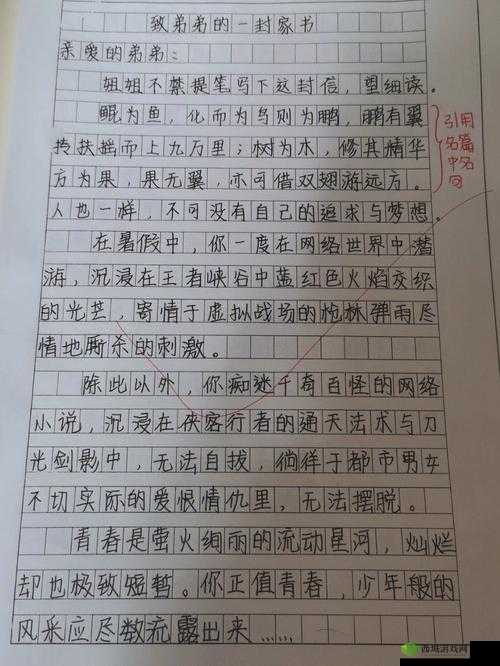 致弟弟的一封家书
亲爱的弟弟：
姐姐不禁提笔写下这封信，望细读。
鲲为鱼，化而为鸟则为鹏，鹏有翼
抟扶摇而上九万里；树为木，修其精华
方为果，果无翼，亦可借双翅游远方。
人也一样，不可没有自己的追求与梦想。
在暑假中，你一度在网络世界中潜
游，沉浸在王者峡谷中蓝红色火焰交织
的光芒，寄情于虚拟战场的枪林弹雨尽
情地厮杀的刺激。
除此以外，你痴迷千奇百怪的网络
小说，沉浸在侠客行者的通天法术与刀
光剑影中，无法自拔，徜徉于都市男女
不切实际的爱恨情仇里，无法摆脱。
青春是萤火绚丽的流动星河，灿烂
却也极致短暂。你正值青春，少年般的
风采应尽数流露出来……
引用
名篇
中名
句
西城游戏网